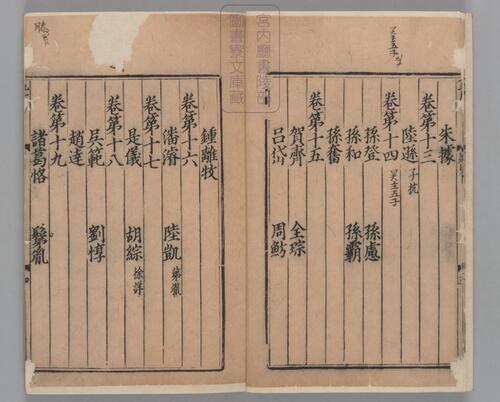 吴主五子
朱據
卷第十三
陸遜 子抗
卷第十四 吴主五子
孫登 孫慮
孫和 孫霸
孫奮
卷第十五
賀齊 全琮
呂岱 周魴
宮内廳書陵部
圖書寮文庫藏
鍾離牧
卷第十六
潘濬 陸凱 弟胤
卷第十七
是儀 胡綜 徐詳
卷第十八
吳範 劉惇
趙達
卷第十九
諸葛恪 滕胤